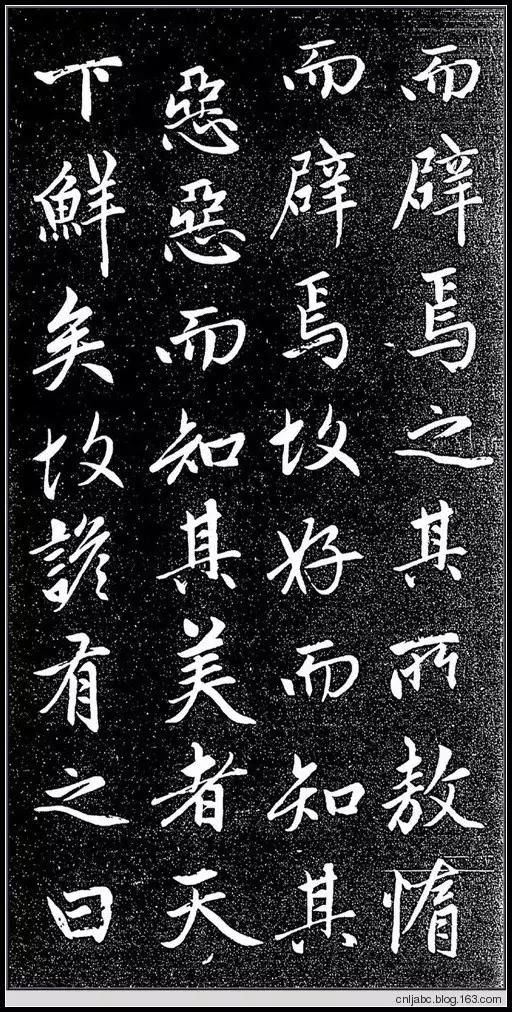 而辟焉之其所敖惰
而辟焉故好而知其
惡惡而知其美者天
下鮮矣故諺有之曰
cnljabc.blog.163.com